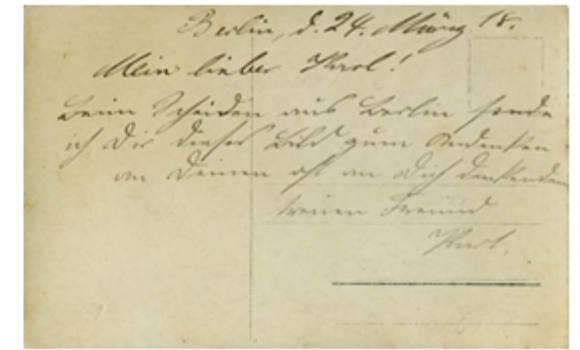 Berlin, d. 24. März 18.
Mein lieber Karl!
Beim Scheiden aus Berlin sende
ich Dir dieses Bild zum Andenken
an Deinen oft an Dich denkenden
treuen Freund
Karl.